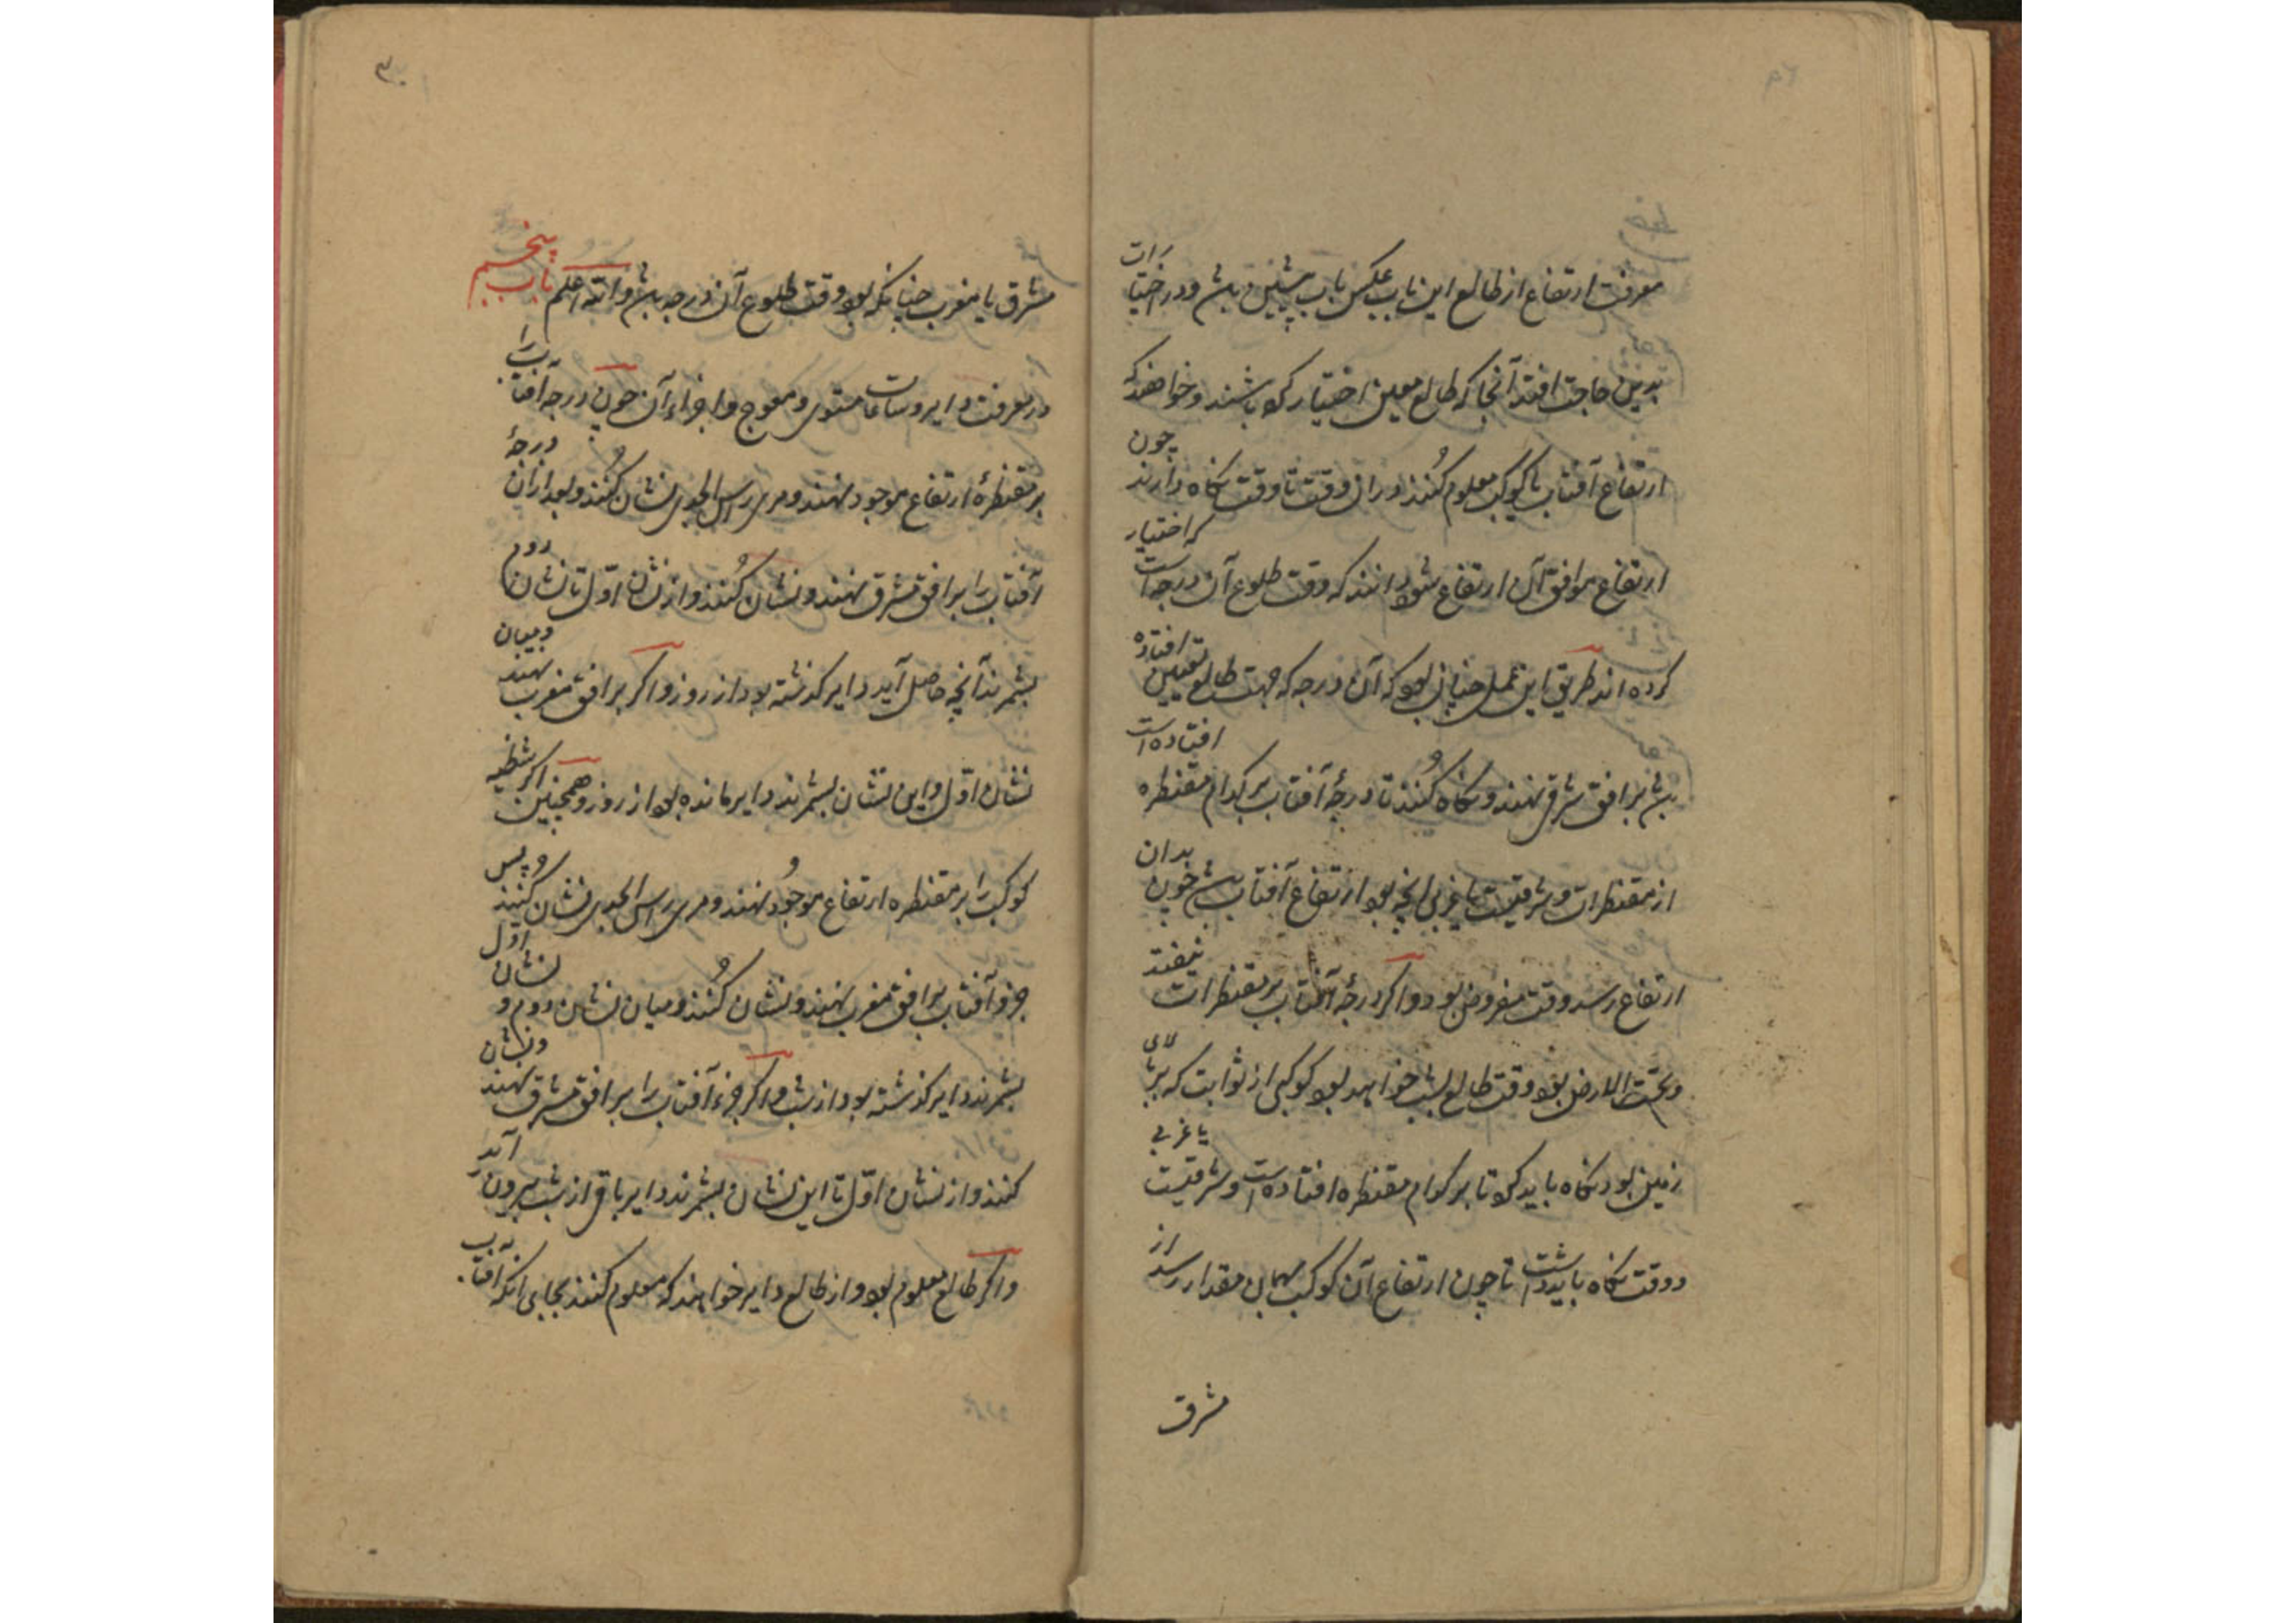 معرفت ارتفاع از طالع این باب عکس باب پیشین باشد و در اختیارات
بدین حاجت افتد آنجا که طالع معین اختیار کرده باشند و خواهند که
ارتفاع آفتاب یا کوکب معلوم کنند در آن وقت تا وقت نگاه دارند چون
ارتفاع موافق آن ارتفاع شود دانند که وقت طلوع آن درجه است که اختیار
کرده اند طریق این عمل چنان بود که آن درجه که جهت طالع تعیین افتاده
باشد بر افق شرق نهند و نگاه کنند تا درجهٔ آفتاب بر کدام مقنطره افتاده است
از مقنطرات و شرقیست یا غربی آنچه بود ارتفاع آفتاب باشد چون بدان
ارتفاع رسد وقت مفروض بود و اگر درجهٔ آفتاب بر مقنطرات نیفتد
و تحت الارض بود وقت طالع بشب خواهد بود کوکبی از ثوابت که بر بالای
زمین بود نگاه باید کرد تا بر کدام مقنطره افتاده است و شرقیست یا غربی
و وقت نگاه باید داشت تا چون ارتفاع آن کوکب بهمان مقدار رسد از
مشرق
۳۰
مشرق یا مغرب چنانکه بود وقت طلوع آن درجه باشد والله اعلم باب پنجم
در معرفت دایر و ساعات مستوی و معوج و اجزاء آن چون درجه آفتاب را
بر مقنطرهٔ ارتفاع موجود نهند و مری راس الجدی نشان کنند و بعد از آن درجهٔ
آفتاب را بر افق مشرق نهند و نشان کنند و از نشان اوّل تا نشان دوم
بشمرند آنچه حاصل آید دایر گذشته بود از روز و اگر بر افق مغرب نهند و میان
نشان اوّل و این نشان بشمرند دایر مانده بود از روز و همچنین اگر شظیه
کوکب را بر مقنطره ارتفاع موجود نهند و مری راس الجدی نشان کنند و پس
جزو آفتاب بر افق مغرب نهند و نشان کنند و میان نشان دوم و نشان اول
بشمرند دایر گذشته بود از شب و اگر جزء آفتاب را بر افق مشرق نهند و نشان
کنند و از نشان اوّل تا این نشان بشمرند دایر باقی از شب بیرون آید
و اگر طالع معلوم بود و از طالع دایر خواهند که معلوم کنند بجای آنکه آفتاب